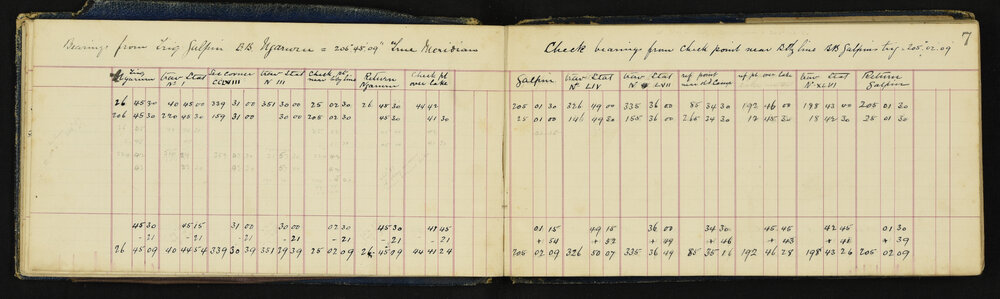 7
Bearings from Trig Galpin B.B. Ngarwen = 205° 45' 09" True Meridian
Trig Ngarwen Trav Stat No I Sec corner CCLXIII Trav Stat N III Check pt, near Bdy line Return Ngarwen Check pt over lake
26 45 30 40 45 00 339 31 00 351 30 00 25 02 30 26 45 30 44 42
206 45 30 220 45 30 159 31 00 30 00 205 02 30 45 30 41 30
45 30 45 15 31 00 30 00 02 30 45 30 41 45
- 21 - 21 - 21 - 21 - 21 - 21
26 45 09 40 44 54 339 30 39 351 29 39 25 02 09 26 45 09 44 41 24
Check bearings from Check point near Bdy line BB Galpins trig = 205° 02' 09
Galpin Trav Stat No LIV Trav Stat N LVII ref point near Rd Comp ref pt over lake Trav Stat N-XLVI Return Galpin
205 01 30 326 49 00 335 36 00 85 34 30 192 46 00 198 43 00 205 01 30
25 01 00 146 49 30 155 36 00 265 34 30 17 45 30 18 42 30 25 01 30
01 15 49 15 36 00 34 30 45 45 42 45 01 30
+ 54 + 52 + 49 + 46 + 43 + 41 + 39
205 02 09 326 50 07 335 36 49 85 35 16 192 46 28 198 43 26 205 02 09